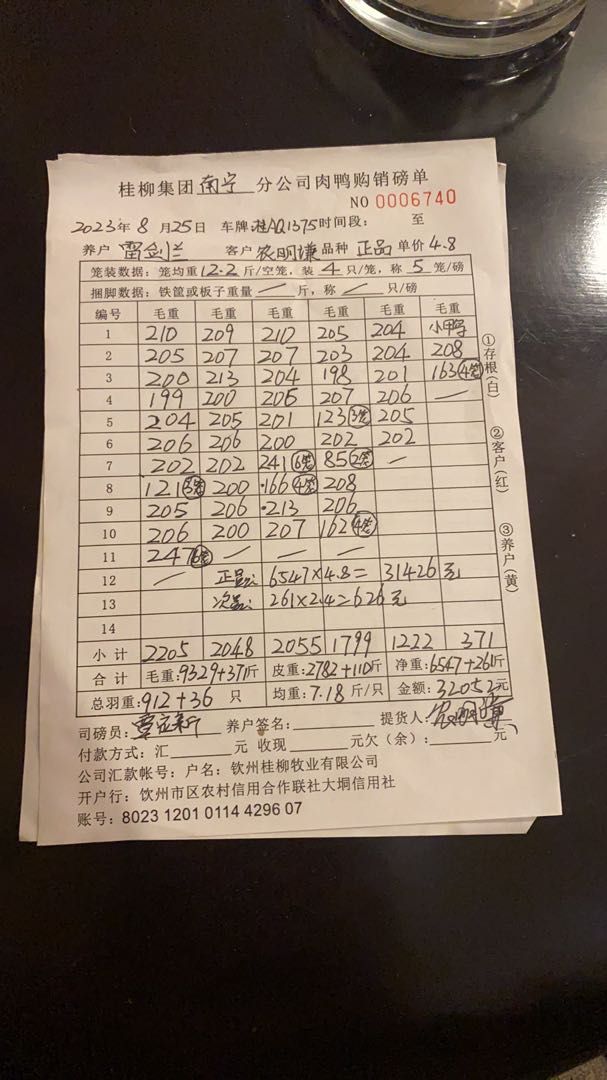 桂柳集团南宁分公司肉鸭购销磅单
NO 0006740
2023年8月25日 车牌:桂AQ1375时间段: 至
养户 雷剑兰 客户 农明谦 品种 正品 单价 4.8
笼装数据:笼均重12.2斤/空笼,装4只/笼,称5笼/磅
捆脚数据:铁筐或板子重量 — 斤,称 — 只/磅
编号 毛重 毛重 毛重 毛重 毛重 毛重
1 210 209 210 205 204
2 205 207 207 203 204 208
3 200 213 204 198 201 163 4笼
4 199 200 206 207 206 —
5 204 205 201 123 3笼 205
6 206 206 200 202 202
7 202 202 241 6笼 85 2笼 —
8 121 3笼 200 166 4笼 208
9 205 206 213 206
10 206 200 207 162 4笼
11 247 6笼 — — —
12 — 正品: 6547×4.8=31426元
13 次品: 261×2.4=626元
14
小计 2205 2048 2055 1799 1222 371
合计 毛重:9329+371斤 皮重:2782+110斤 净重:6547+261斤
总羽重:912+36 只 均重:7.18 斤/只 金额:32052元
司磅员: 养户签名: 提货人:
付款方式:汇 元 收现 元欠(余): 元
公司汇款帐号:户名:钦州桂柳牧业有限公司
开户行:饮州市区农村信用合作联社大垌信用社
账号:8023 1201 0114 4296 07
①存根(白)
②客户(红)
③养户(黄)